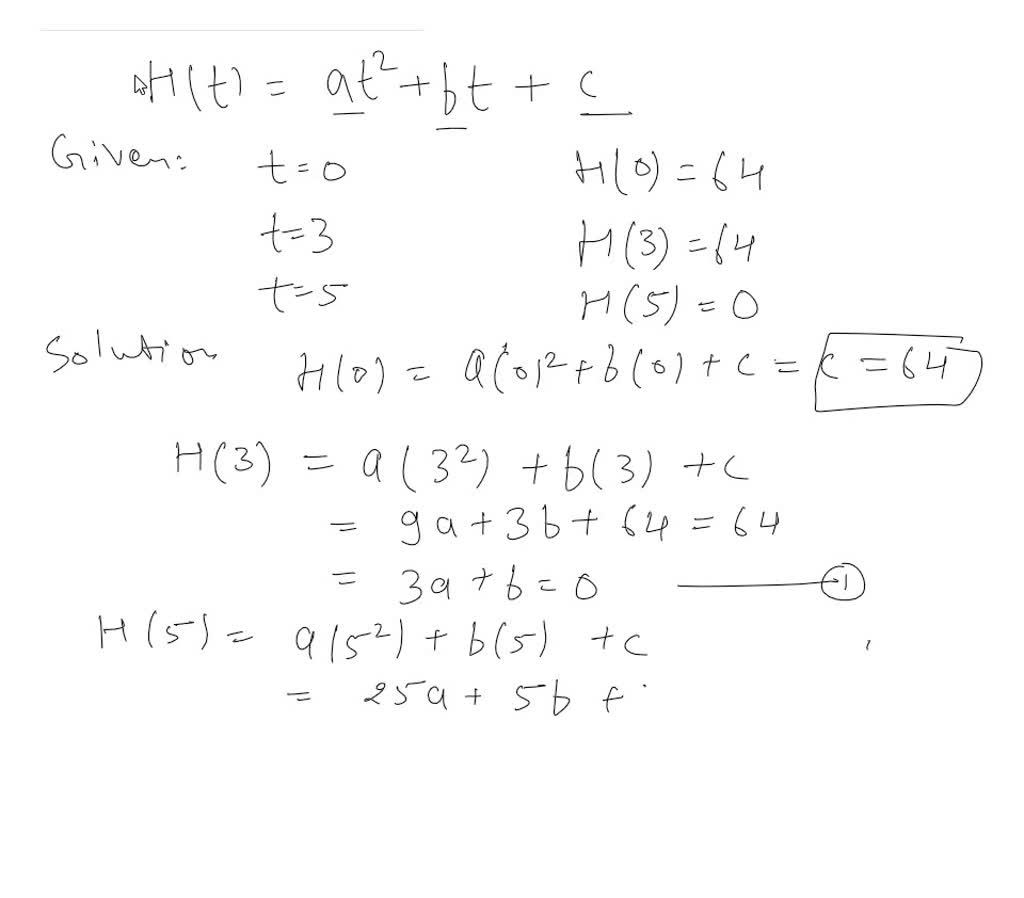 H(t) = at² + bt + c
Given: t=0 H(0) = 64
t=3 H(3) = 64
t=5 H(5) = 0
Solution H(0) = a(0)² + b(0) + c = c = 64
H(3) = a(3²) + b(3) + c
= 9a + 3b + 64 = 64
= 3a + b = 0 ——— ①
H(5) = a(5²) + b(5) + c
= 25a + 5b +